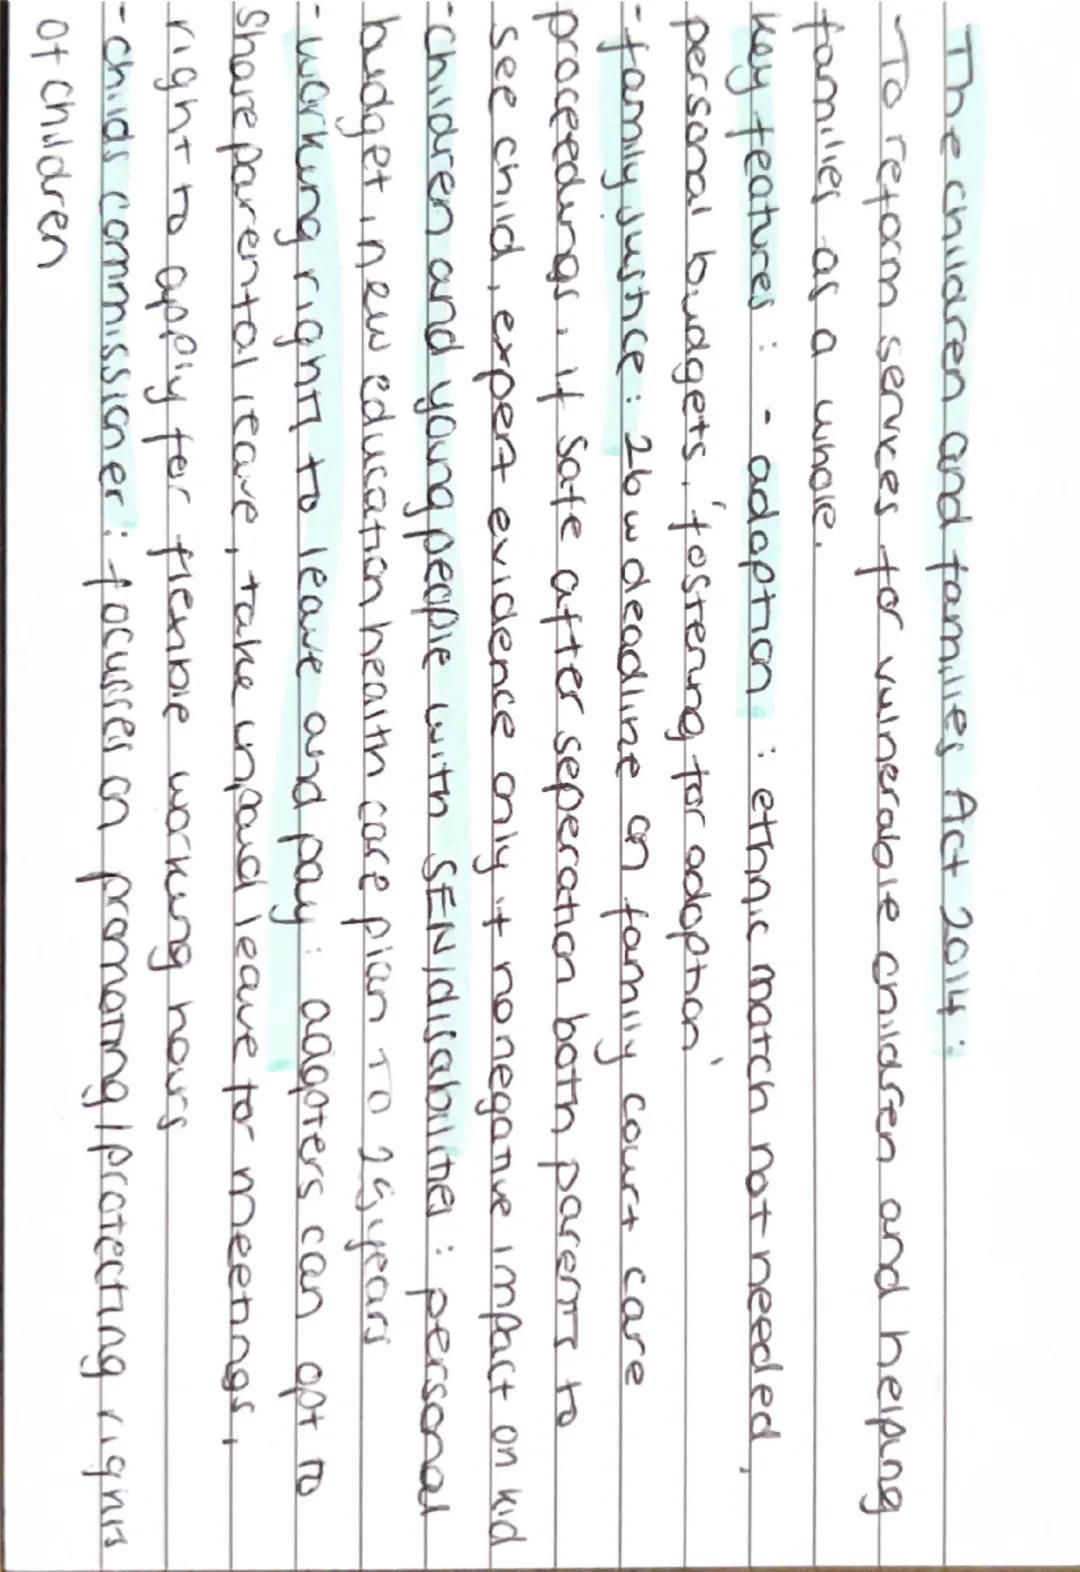 The children and families Act 2014:
-To reform services for vulnerable children and helping
families as a whole.
Key features: - adoption: ethnic match not needed,
personal budgets, 'fostering for adoption'
- family justice: 26w deadline on family court care
proceedings, if safe after seperation both parents to
see child, expert evidence only if no negative impact on kid
- children and young people with SEN/disabilities: personal
budget, new education health care plan to 25 years
- working rights to leave and pay: adopters can opt to
share parental leave, take unpaid leave for meetings,
right to apply for flexible working hours
- childs commissioner: focusses on promoting/protecting rights
of children